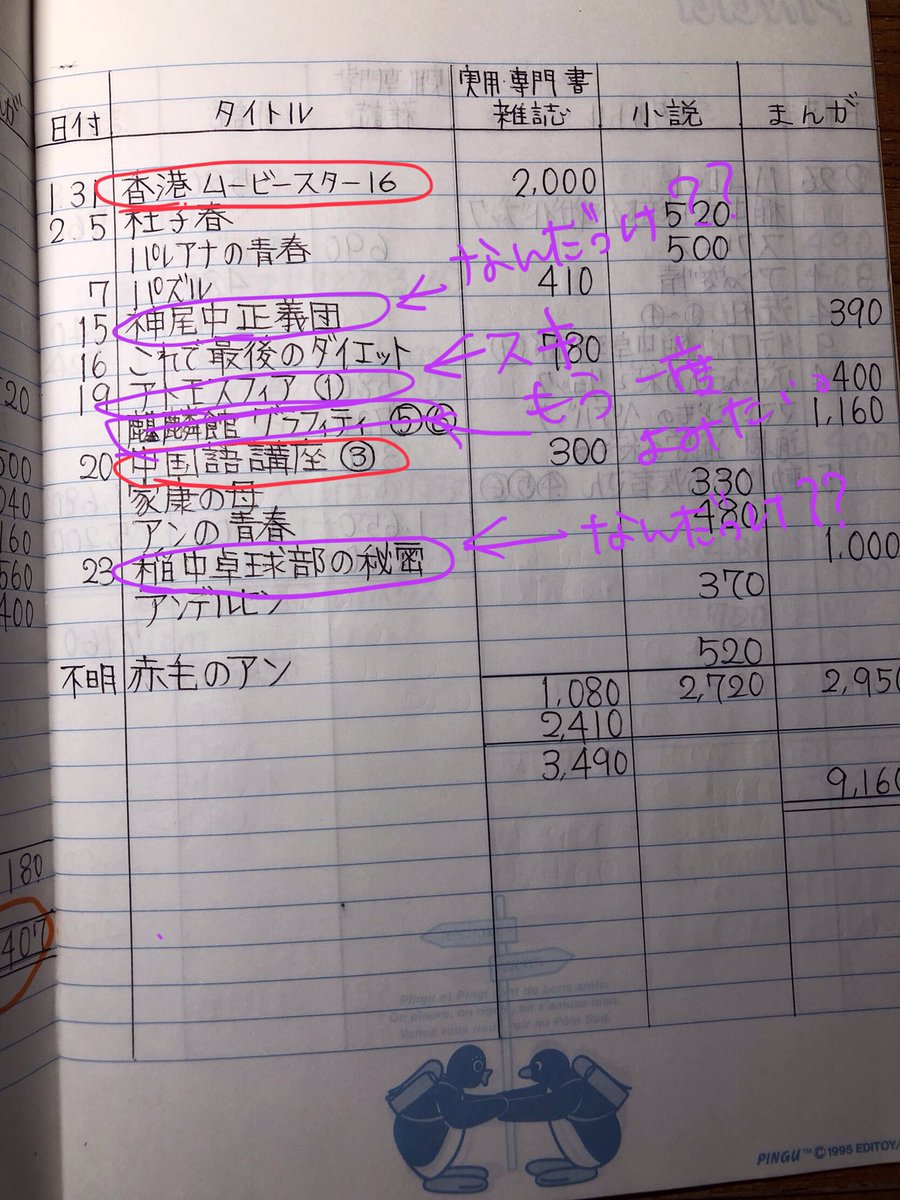 PINGU
実用・専門書
日付 タイトル 雑誌 小説 まんが
1 31 香港ムービースター16 2,000
2.5 杜子春 520
パレアナの青春 500
7 パズル 410
なんだっけ??
15 神尾中正義団 390
16 これで最後のダイエット 780
スキ
19 アトモスフィア① 400
麒麟館グラフィティ⑤⑥ 1,160
もう一度
よみたい。
20 中国語講座③ 300
家康の母 330
アンの青春 480
なんだっけ??
23 稲中卓球部の秘密 1.000
アンデルセン 370
520
不明 赤毛のアン
1,080 2,720 2,950
2,410
3,490
9,160
520
500
040
160
560
400
180
407
Pingu et Pingi sont de bons amis.
On pleure, on rigole, on s'amuse bien.
Venez tous nous voir au Pôle Sud.
PINGU™©1995 EDITOY